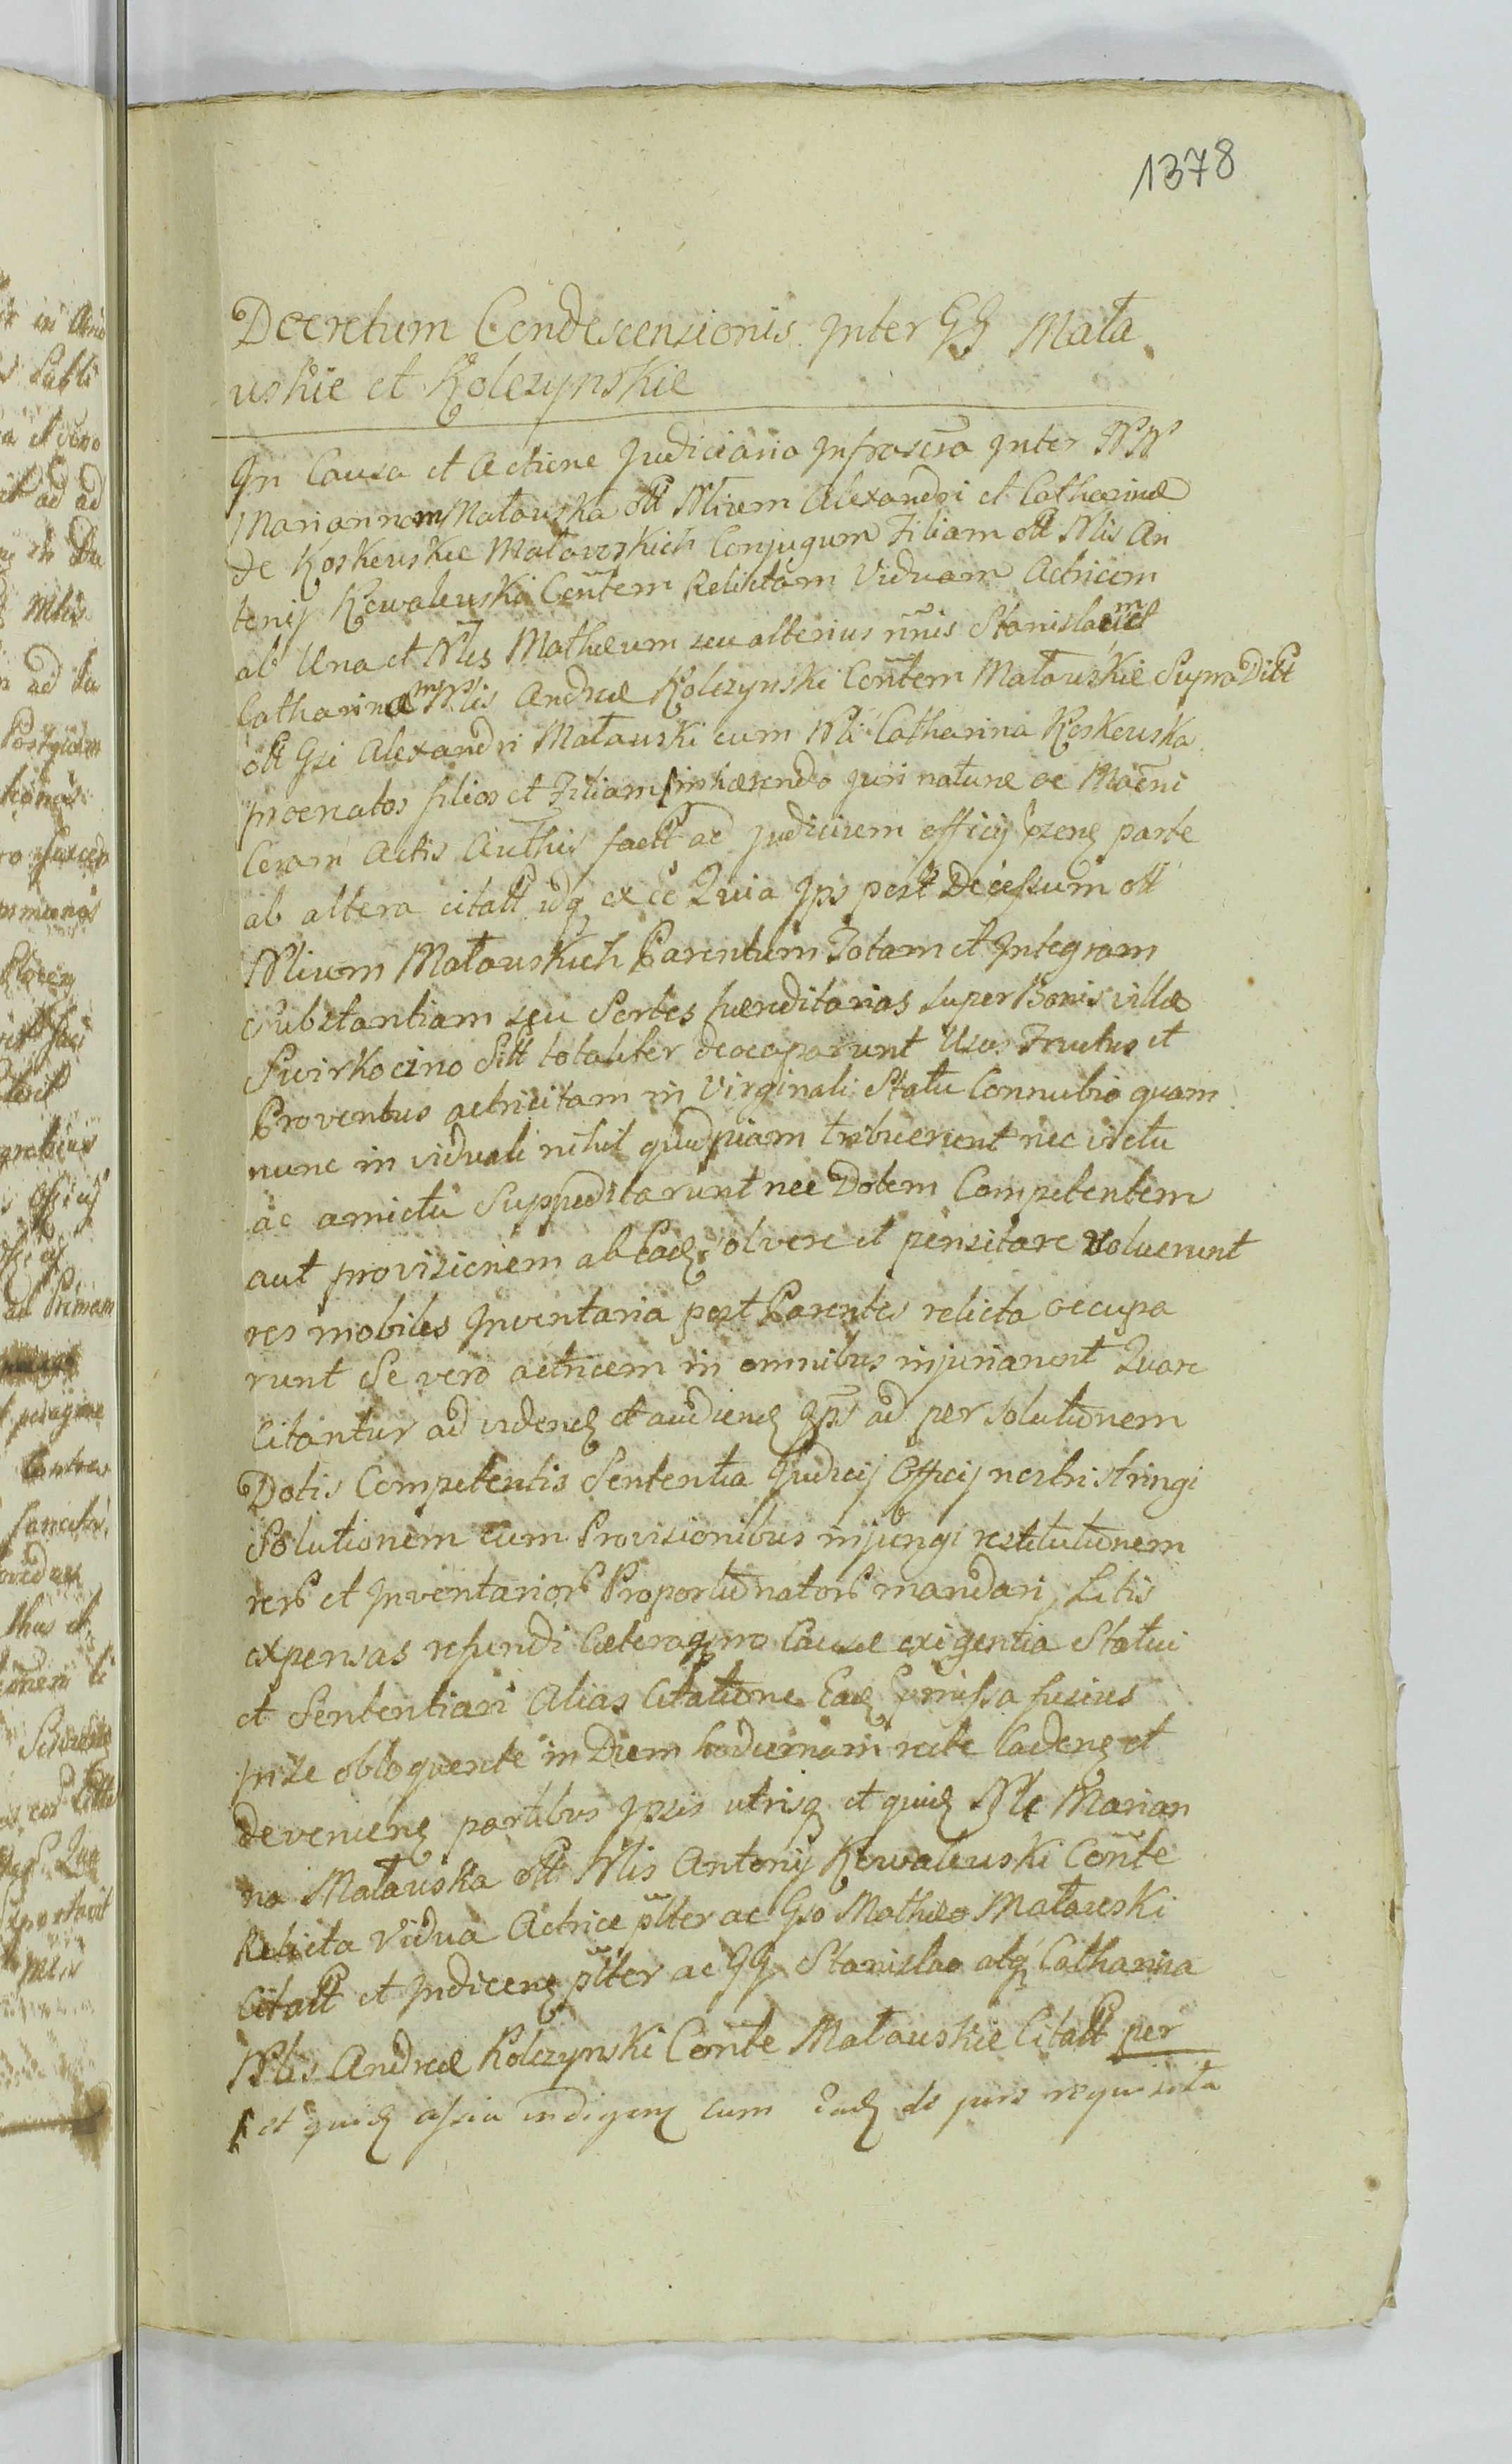 1378
Decretum Condescensionis inter GG Mała
uskie et Kolczynskie
In Causa et Actione Judiciaria Infrascra inter NN
Mariannam Matauska olt Nlium Alexandri et Catharinæ
de Koskeuskie Matauskich Conjugum Filiam olt Nlis An
tonij Kowaleuski Contem Relictam Viduam Actricem
ab Una et Nles Mathæum seu alterius nnis Stanislaum et
Catharinam Nlis Andreæ Kolczynski Contem Matauskie Supra Ditt
olt Gsi Alexandri Matauski cum Nli Catharina Koskeuska
procreatos filios et Filiam inhærendo juri naturæ ac Macni
Coram Actis Authis factt ac Judicium officij pzenę parte
ab altera citatt idq ex eo Quia Ips post Decessum olt
Nlium Matauskich Parentum Totam et Integram
Substantiam seu Sortes hæreditarias super Bonis villæ
Swirkocino Sitt totaliter deocuparunt Usus Fructus et
Proventus actrici tam in Virginali Statu Connubio quam
nunc in viduali nihil quidpiam tribuerunt nec victu
ac amictu Suppeditarunt nec Dotem Competentem
aut provisionem ab Eadę solvere et pensitare voluerunt
res mobiles Inventaria post Parentes relicta occupa
runt Se vero actricem in omnibus injuriarunt Quare
Citantur ad videnę et audienę Ips ad persolutionem
Dotis Competentis Sententia Judicij Officij nostri stringi
Solutionem cum Provisionibus injungi restitutionem
rerũ et Inventariorũ Proportionatorũ mandari, Litis
expensas refundi Cæteraq pro Causæ exigentia Statui
et Sententiari Alias Citatione Eadę præmissa fusius
in se obloquente in Diem hodiernam recte Cadenę et
devenienę partibus Ipsis utrisq et quidę Nle Marian
na Matauska olt Nlis Antonij Kowaleuski Conte
Relicta Vidua Actrice pltter ac Gso Matheo Matauski
Citatt et Indicenę pltter ac GG Stanislao atq Catharina
Nlis Andreæ Kolczynski Conte Matauskie Citatt per
et quidę assia indigenę cum Eadę de jure requisita